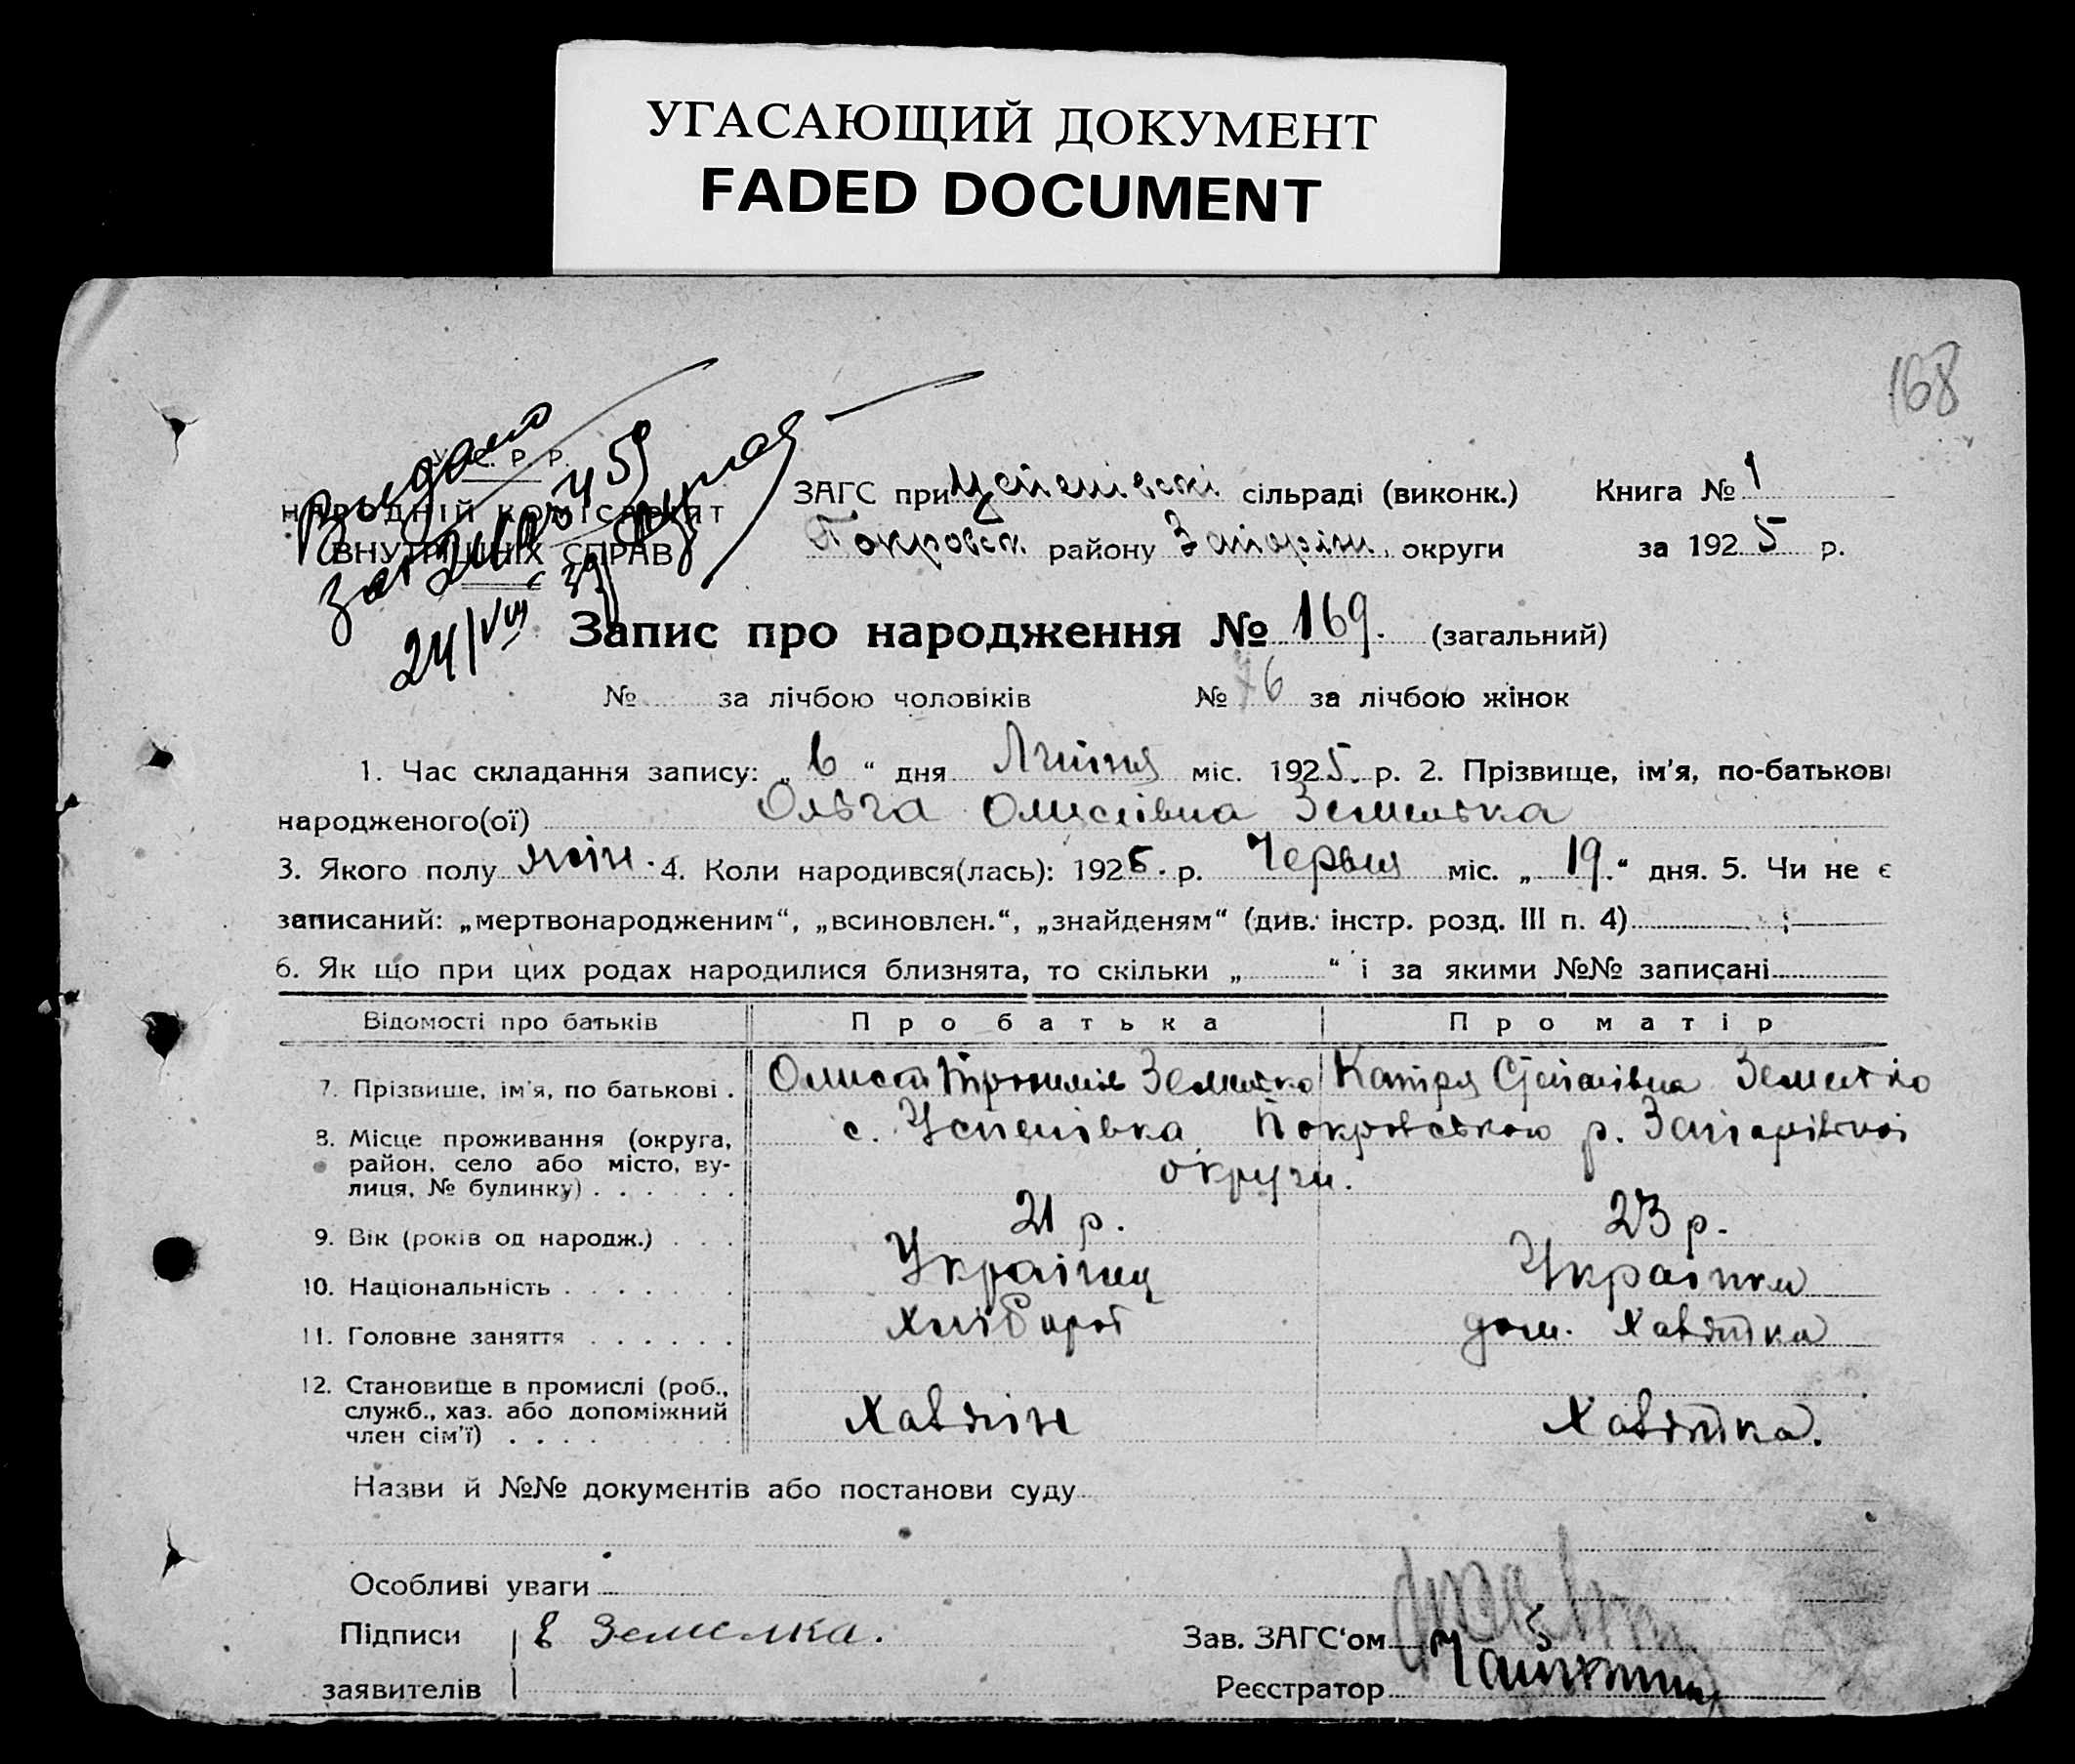 УГАСАЮЩИЙ ДОКУМЕНТ
FADED DOCUMENT
168
У. С. Р. Р.
НАРОДНІЙ КОМІСАРІЯТ
ВНУТРІШНІХ СПРАВ
Выдано
24/VIII
ЗАГС при Успенівскі сільраді (виконк.) Книга № 1
Покровск району Запоріж. округи за 1925 р.
Запис про народження № 169. (загальний)
№ за лічбою чоловіків № 76 за лічбою жінок
1. Час складання запису: „ 6 “ дня Липня міс. 1925. р. 2. Прізвище, ім'я, по-батькові
народженого(ої) Ольга Омисіівна Земелька
3. Якого полу жін. 4. Коли народився(лась): 1925. р. Червня міс. „ 19. “ дня. 5. Чи не є
записаний: „мертвонародженим“, „всиновлен.“, „знайденям“ (див. інстр. розд. III п. 4)
6. Як що при цих родах народилися близнята, то скільки „ “ і за якими №№ записані
Відомості про батьків Про батька Про матір
7. Прізвище, ім'я, по батькові . Земелько Катря Степанівна Земелько
8. Місце проживання (округа, с. Успенівка Покровського р. Запорізької
район, село або місто, ву- округи.
лиця, № будинку) . . . . . .
9. Вік (років од народж.) . . . 21 р. 23 р.
10. Національність . . . . . . . Українец Українка
11. Головне заняття . . . . . . Хлібороб дом. Хазяйка
12. Становище в промислі (роб.,
служб., хаз. або допоміжний Хазяін Хазяйка.
член сім'ї) . . . .
Назви й №№ документів або постанови суду
Особливі уваги
Підписи Земелка. Зав. ЗАГС'ом
заявителів Реєстратор